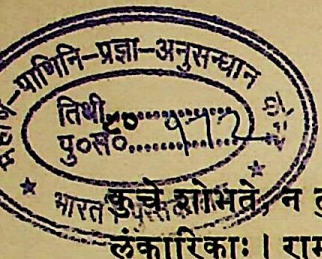 पाणिनि-प्रज्ञा-अनुसन्धान
तिथी
पु०सं० ११२
भारत
कुचे शोभते, न तु
लंकारिकाः । राम